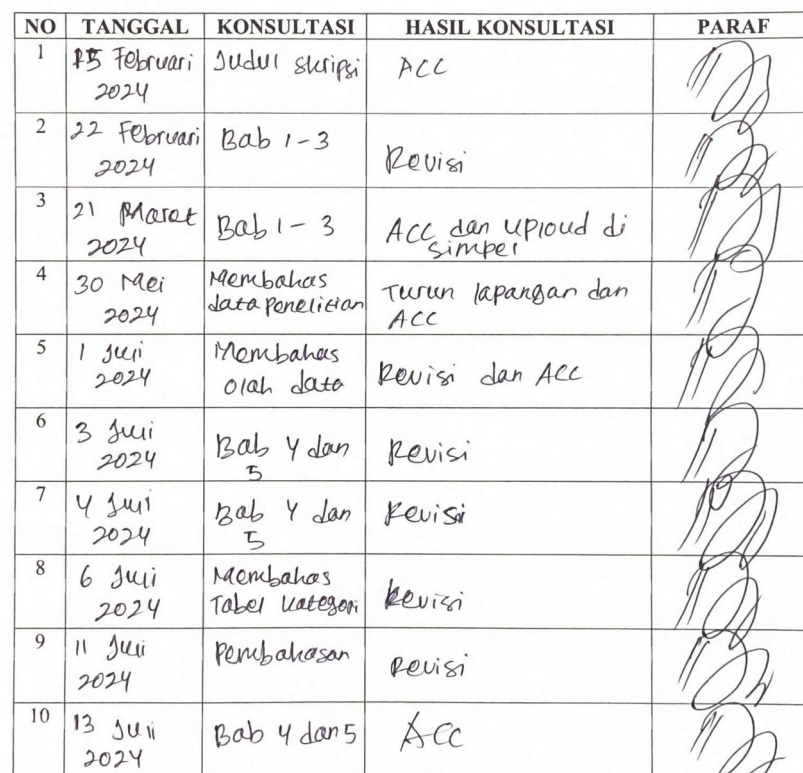 NO TANGGAL KONSULTASI HASIL KONSULTASI PARAF
1 15 Februari 2024 Judul skripsi ACC
2 22 Februari 2024 Bab 1-3 Revisi
3 21 Maret 2024 Bab 1-3 ACC dan uploud di simpel
4 30 Mei 2024 Membahas data penelitian Turun lapangan dan ACC
5 1 Juli 2024 Membahas olah data Revisi dan ACC
6 3 Juli 2024 Bab 4 dan 5 Revisi
7 4 Juli 2024 Bab 4 dan 5 Revisi
8 6 Juli 2024 Membahas Tabel kategori Revisi
9 11 Juli 2024 Pembahasan Revisi
10 13 Juli 2024 Bab 4 dan 5 ACC